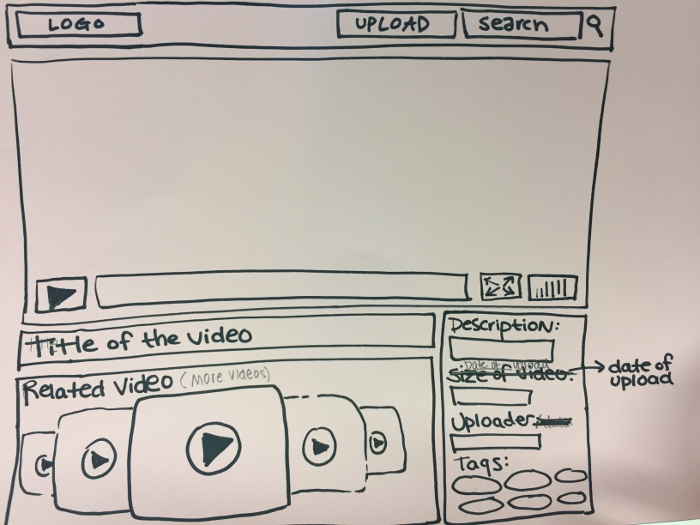 LOGO
UPLOAD
search
Title of the video
Description:
Related Video (more videos)
Date of upload
Size of Video:
date of
upload
Uploader:
Tags: